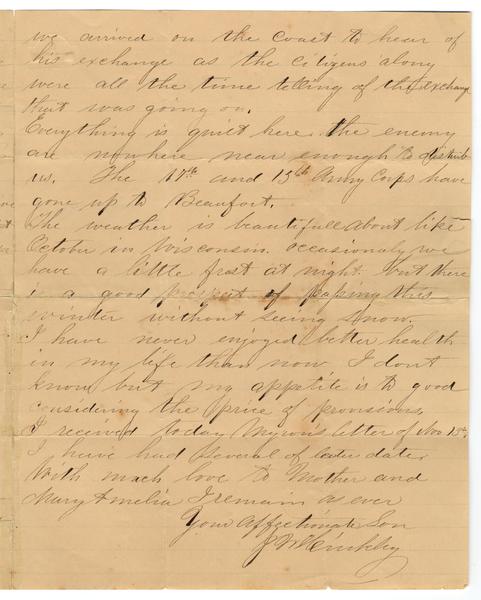 we arrived on the coast to hear of
his exchange as the citizens along
were all the time telling of the exchange
that was going on.
Everything is quiet here. the enemy
are nowhere near enough to distrub
us. The 17th and 15th Army Corps have
gone up to Beaufort.
The weather is beautifull about like
October in Wisconsin. occasionaly we
have a little frost at night. but there
is a good prospect of passing this
winter without seeing snow.
I have never enjoyed better health
in my life than now I dont
know but my appetite is to good
considering the price of provisions
I received today Myron's letter of Nov 13th.
I have had several of later date.
With much love to Mother and
Mary Amelia I remain as ever
Your Affectionate Son
Hinkley